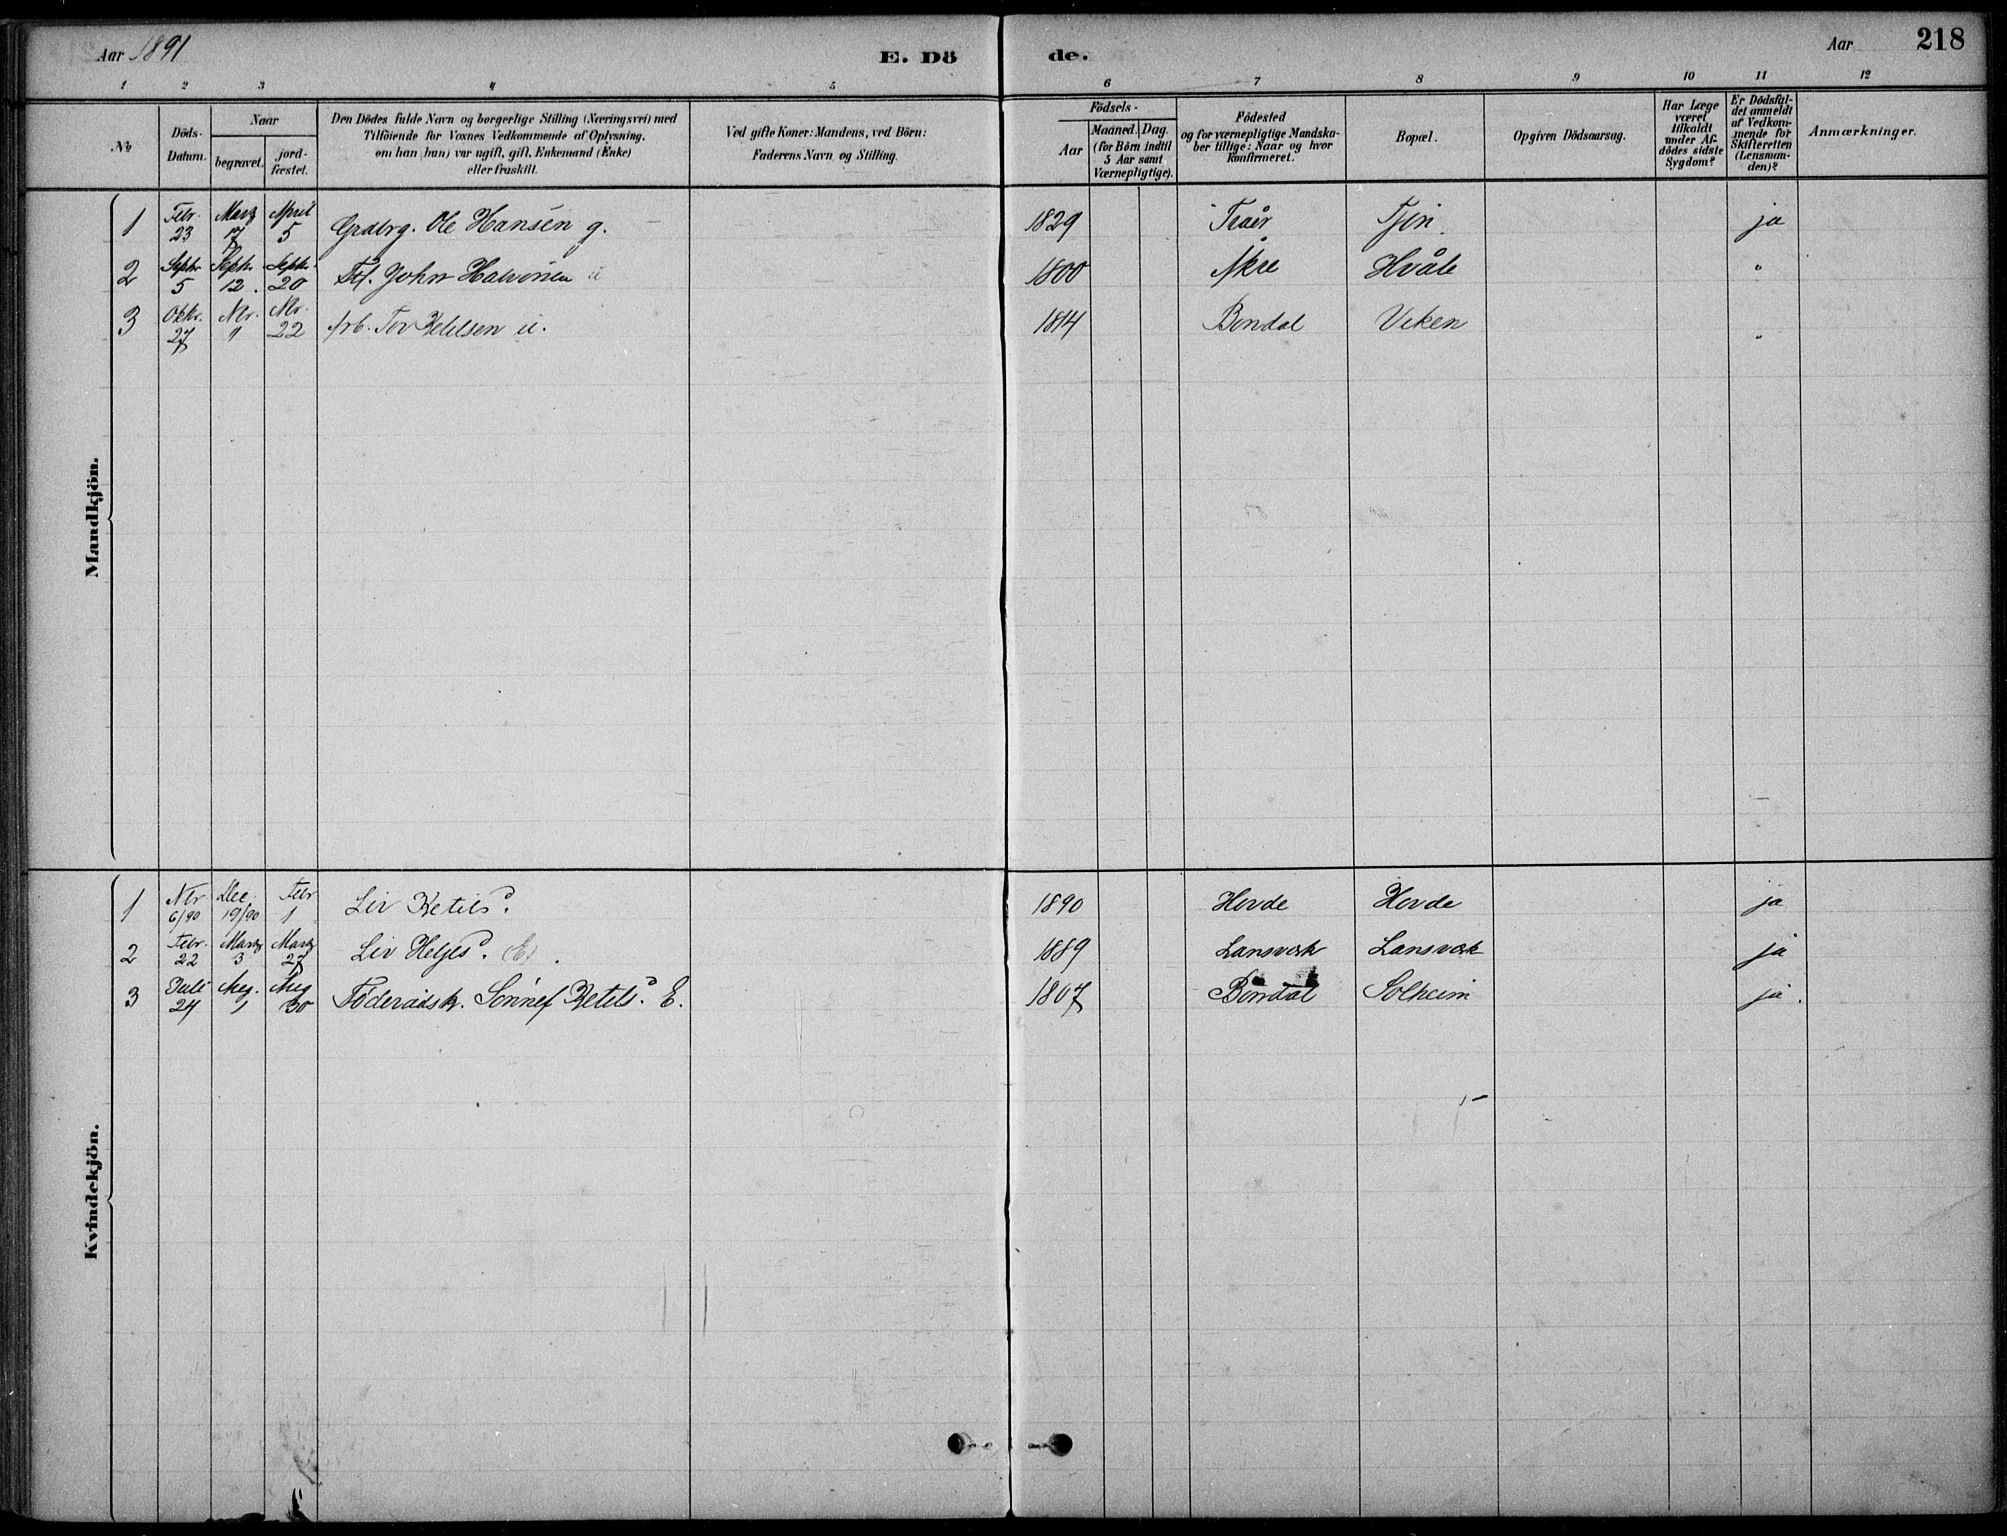 Aar 1891
E. Dö
de.
Aar
218
1 2 3 4 5 6 7 8 9 10 11 12
No
Döds-Datum.
Naar
begravet.
jord-fæstet.
Den Dödes fulde Navn og borgerlige Stilling (Næringsvei) med
Tilföiende for Voxnes Vedkommende af Oplysning,
om han (hun) var ugift, gift, Enkemand (Enke)
eller fraskilt.
Ved gifte Koner: Mandens, ved Börn:
Faderens Navn og Stilling.
Födsels-
Aar
Maaned. Dag.
(for Börn indtil
5 Aar samt
Værnepligtige).
Födested
og for værnepligtige Mandska-
ber tillige: Naar og hvor
Konfirmeret.
Bopæl.
Opgiven Dödsaarsag.
Har Læge
været
tilkaldt
under Af-
dödes sidste
Sygdom?
Er Dödsfal-
det anmeldt
af Vedkom-
mende for
Skifteretten
(Lensman-
den)?
Anmærkninger.
Mandkjön.
1 Febr. 23 Marts 17 April 5 Grdbrg. Ole Hansen g. 1829 Traaer Tjin. ja
2 Septr 5 Septr 12. Septr. 20 John Halvorsen u 1800 Åkre Hvåle "
3 Oktr. 27 Nbr. 9 Nbr. 22 Arb. Tov Ketilsen u. 1814 Bondal Viken "
Kvindekjön.
1 Nbr 6/90 Dec. 19/90 Febr 1 Liv Ketilsd. 1890 Hovde Hovde ja
2 Febr. 22 Marts 3 Marts 27 Liv Heljesd. (E). 1889 Lansverk Lansverk ja
3 Juli 24 Aug. 1 Aug 30 Föderådsk. Sönnef Ketilsd. E. 1807 Bondal Solheim ja.